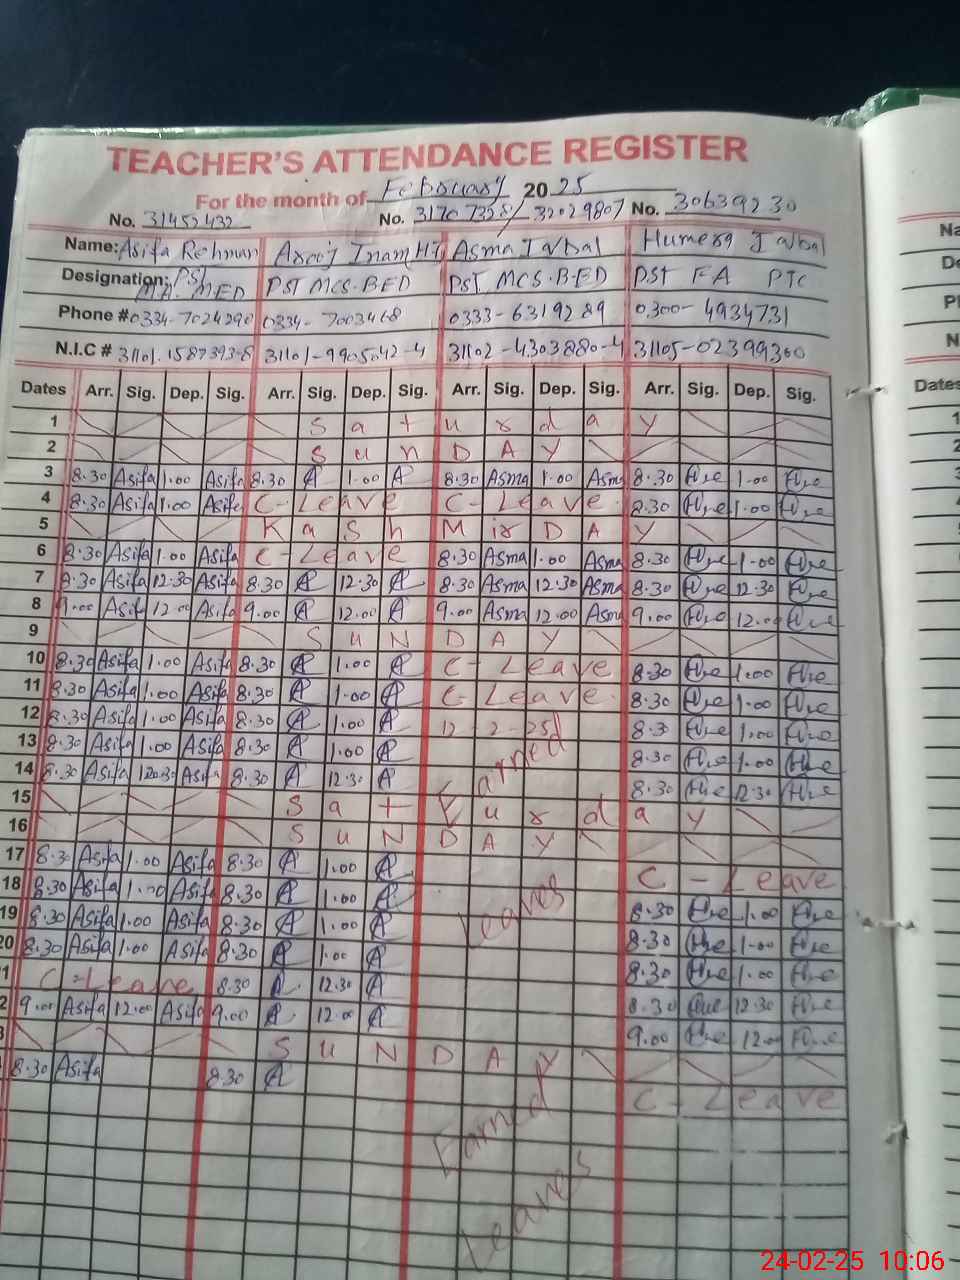 TEACHER'S ATTENDANCE REGISTER
For the month of February 2025
No. 31452432 No. 31707328/ 32029807 No. 30639230
Name: Asifa Rehman Arooj Inam Asma Iqbal Humera Iqbal
Designation: PST MA. MED PST MCS.BED PST MCS.BED PST FA PTC
Phone # 0334-7024290 0334-7003468 0333-6319289 0300-4934731
N.I.C # 31101-1587393-8 31101-9905042-4 31102-4303880-4 31105-02399300
Dates Arr. Sig. Dep. Sig. Arr. Sig. Dep. Sig. Arr. Sig. Dep. Sig. Arr. Sig. Dep. Sig.
1 Saturday
2 SunDAY
3 8.30 Asifa 1.00 Asifa 8.30 A 1.00 A 8.30 Asma 1.00 Asma 8.30 1.00
4 8.30 Asifa 1.00 Asifa C-Leave C-Leave 8.30 1.00
5 KaSh MirDAY
6 8.30 Asifa 1.00 Asifa C-Leave 8.30 Asma 1.00 Asma 8.30 1.00
7 8.30 Asifa 12.30 Asifa 8.30 A 12.30 A 8.30 Asma 12.30 Asma 8.30 12.30
8 9.00 Asifa 12.00 Asifa 9.00 A 12.00 A 9.00 Asma 12.00 Asma 9.00 12.00
9 SUNDAY
10 8.30 Asifa 1.00 Asifa 8.30 A 1.00 A C-Leave 8.30 1.00
11 8.30 Asifa 1.00 Asifa 8.30 A 1.00 A C-Leave 8.30 1.00
12 8.30 Asifa 1.00 Asifa 8.30 A 1.00 A 12-2-25 8.30 1.00
13 8.30 Asifa 1.00 Asifa 8.30 A 1.00 A Earned 8.30 1.00
14 8.30 Asifa 12.30 Asifa 8.30 A 12.30 A 8.30 12.30
15 Saturday
16 SUNDAY
17 8.30 Asifa 1.00 Asifa 8.30 A 1.00 A C-Leave
18 8.30 Asifa 1.00 Asifa 8.30 A 1.00 A Leaves 8.30 1.00
19 8.30 Asifa 1.00 Asifa 8.30 A 1.00 A 8.30 1.00
20 8.30 Asifa 1.00 Asifa 8.30 A 1.00 A 8.30 1.00
1 C-Leave 8.30 A 12.30 A 8.30 12.30
2 9.00 Asifa 12.00 Asifa 9.00 A 12.00 A 9.00 12.00
3 SUNDAY
8.30 Asifa 8.30 A C-Leave
Earned
Leaves
Dates
24-02-25 10:06